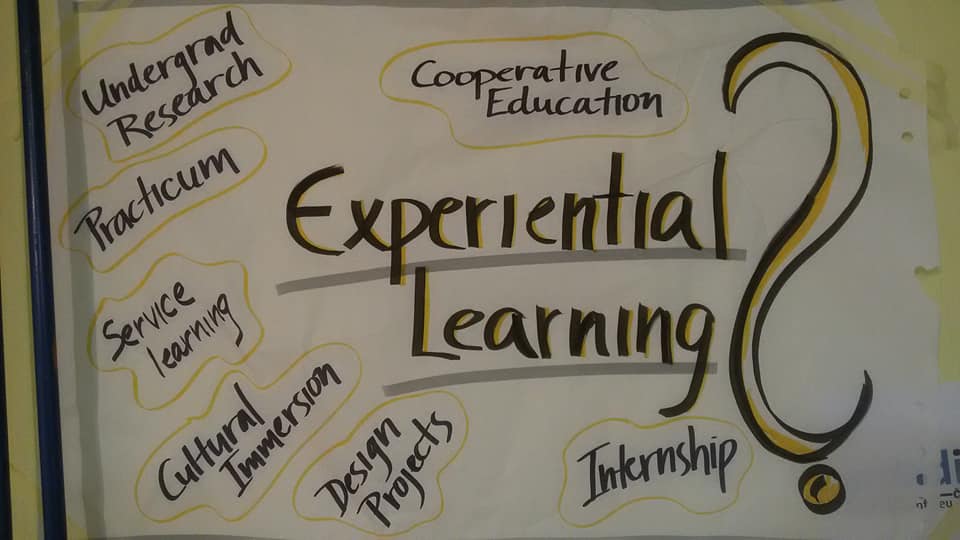 Undergrad
Research
Cooperative
Education
Practicum
Experiential
Learning?
Service
learning
Cultural
Immersion
Design
Projects
Internship